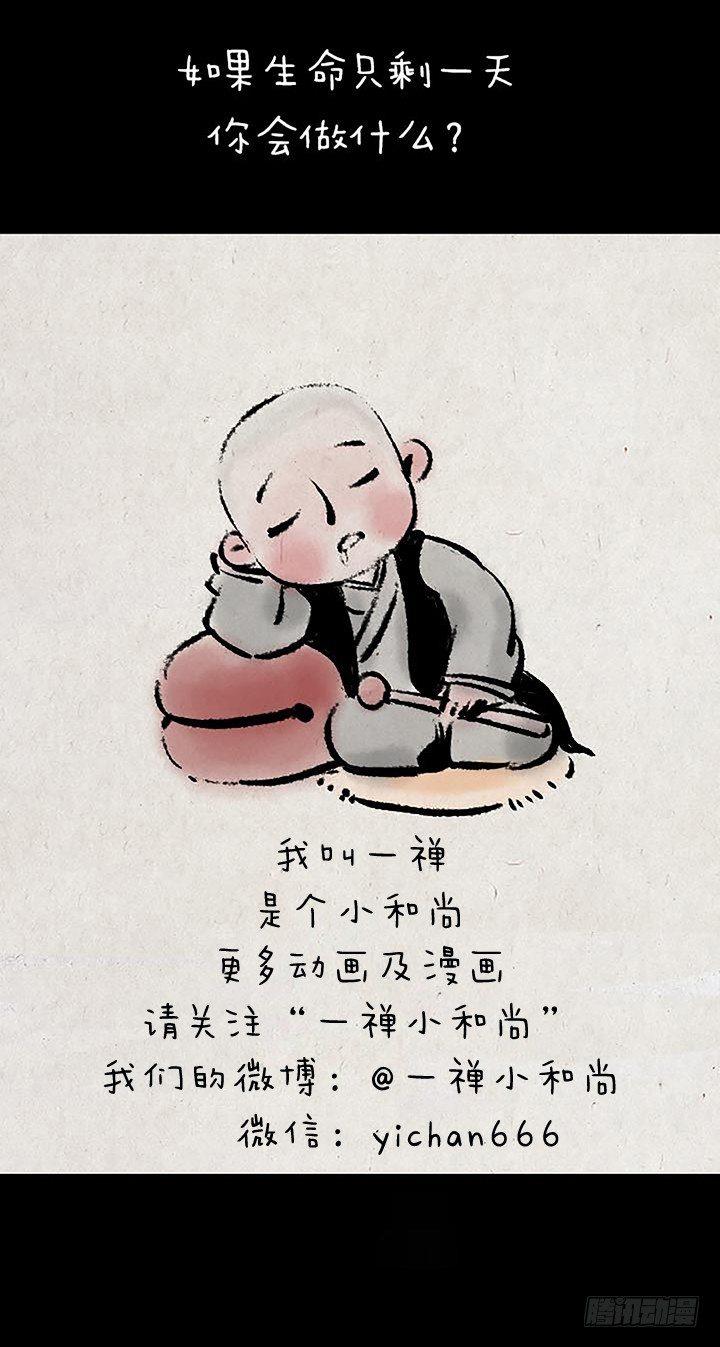 如果生命只剩一天
你会做什么？
我叫一禅
是个小和尚
更多动画及漫画
请关注“一禅小和尚”
我们的微博：@一禅小和尚
微信：yichan666
腾讯动漫